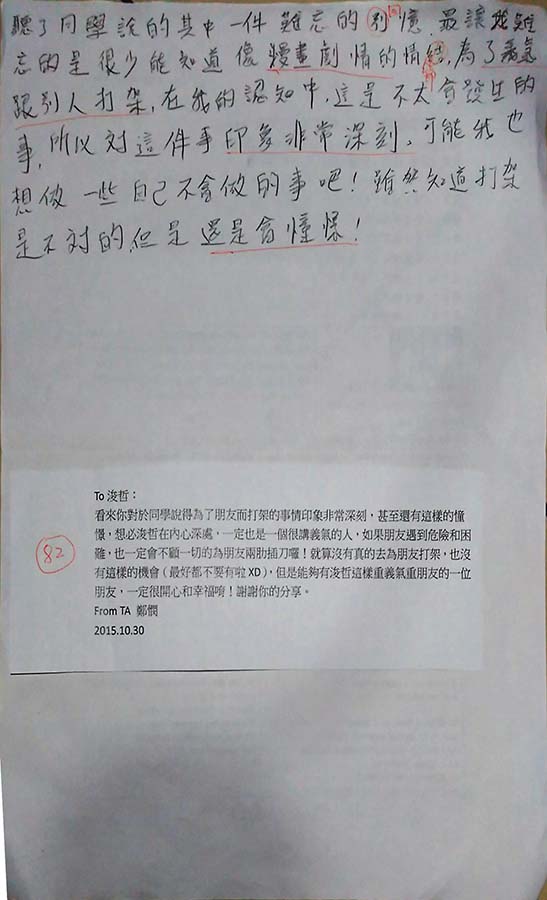 聽了同學說的其中一件難忘的別憶，最讓我難
回
忘的是很少能知道像漫畫劇情的情結，為了義氣
節
跟別人打架，在我的認知中，這是不太會發生的
事，所以对這件事印象非常深刻。可能我也
想做一些自己不會做的事吧！雖然知道打架
是不对的，但是還是會憧憬！
To 浚哲：
看來你對於同學說得為了朋友而打架的事情印象非常深刻，甚至還有這樣的憧
憬，想必浚哲在內心深處，一定也是一個很講義氣的人，如果朋友遇到危險和困
難，也一定會不顧一切的為朋友兩肋插刀囉！就算沒有真的去為朋友打架，也沒
有這樣的機會（最好都不要有啦 XD），但是能夠有浚哲這樣重義氣重朋友的一位
朋友，一定很開心和幸福唷！謝謝你的分享。
From TA 鄭憫
2015.10.30
82